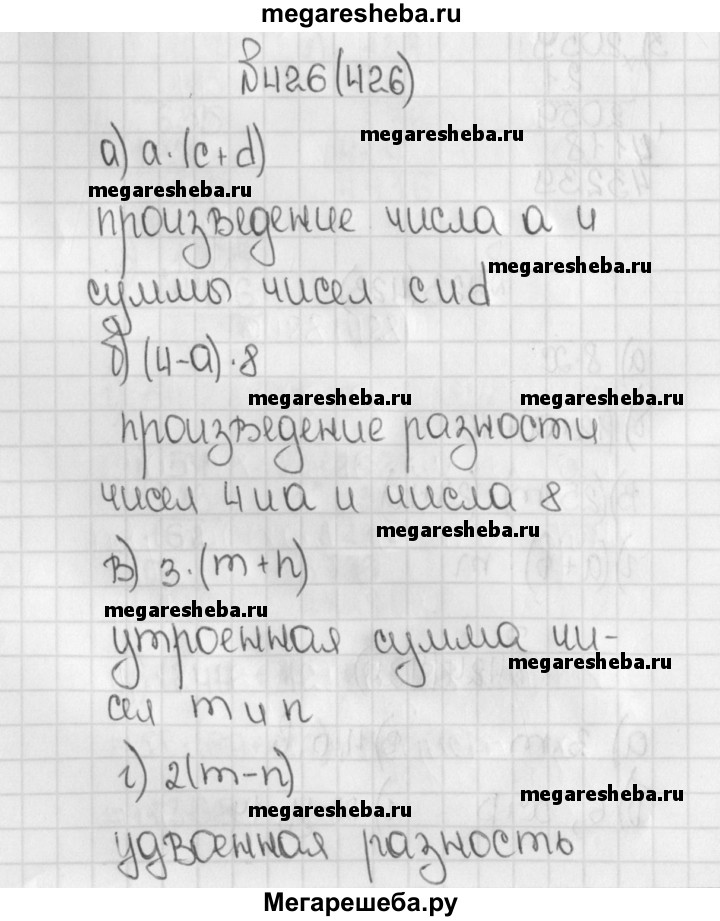 megaresheba.ru
№426(426)
megaresheba.ru
а) a·(c+d)
megaresheba.ru
произведение числа a и
megaresheba.ru
суммы чисел c и d
б) (4-a)·8
megaresheba.ru megaresheba.ru
произведение разности
чисел 4 и a и числа 8
megaresheba.ru
в) 3·(m+n)
megaresheba.ru
утроенная сумма чи-
megaresheba.ru
сел m и n
г) 2(m-n)
megaresheba.ru megaresheba.ru
удвоенная разность
Мегарешеба.ру